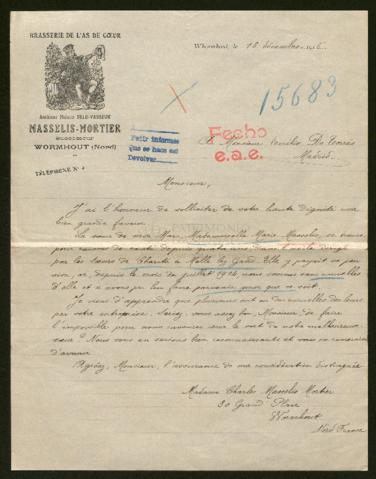 BRASSERIE DE L'AS DE CŒUR
Ancienne Maison
MASSELIS-MORTIER
SUCCESSEUR
WORMHOUT (Nord)
TÉLÉPHONE N° 4
Wormhout, le 16 décembre 1916.
15683
Pedir informes
que se hace así
Devolver
Fecho
e.a.e.
A Monsieur Emilio De Torrès
Madrid.
Monsieur,
J'ai l'honneur de solliciter de votre haute dignité une
bien grande faveur.
La sœur de mon Mari, Mademoiselle Marie Masselis, se trouve
pour raisons de santé depuis quatre ans dans l'asile dirigé
par les Sœurs de Charité à Melle lez Gand. Elle y payait sa pen
sion, or, depuis le mois de juillet 1914, nous sommes sans nouvelles
d'elle et n'avons pu lui faire parvenir quoi que ce soit.
Je viens d'apprendre que plusieurs ont eu des nouvelles des leurs
par votre entremise. Soyez assez bon, Monsieur, de faire
l'impossible pour nous rassurer sur le sort de notre malheureuse
sœur! Nous vous en serions bien reconnaissants et vous en remercions
d'avance
Agréez, Monsieur, l'assurance de ma considération distinguée
Madame Charles Masselis Mortier
30 Grand Place
Wormhout
Nord France